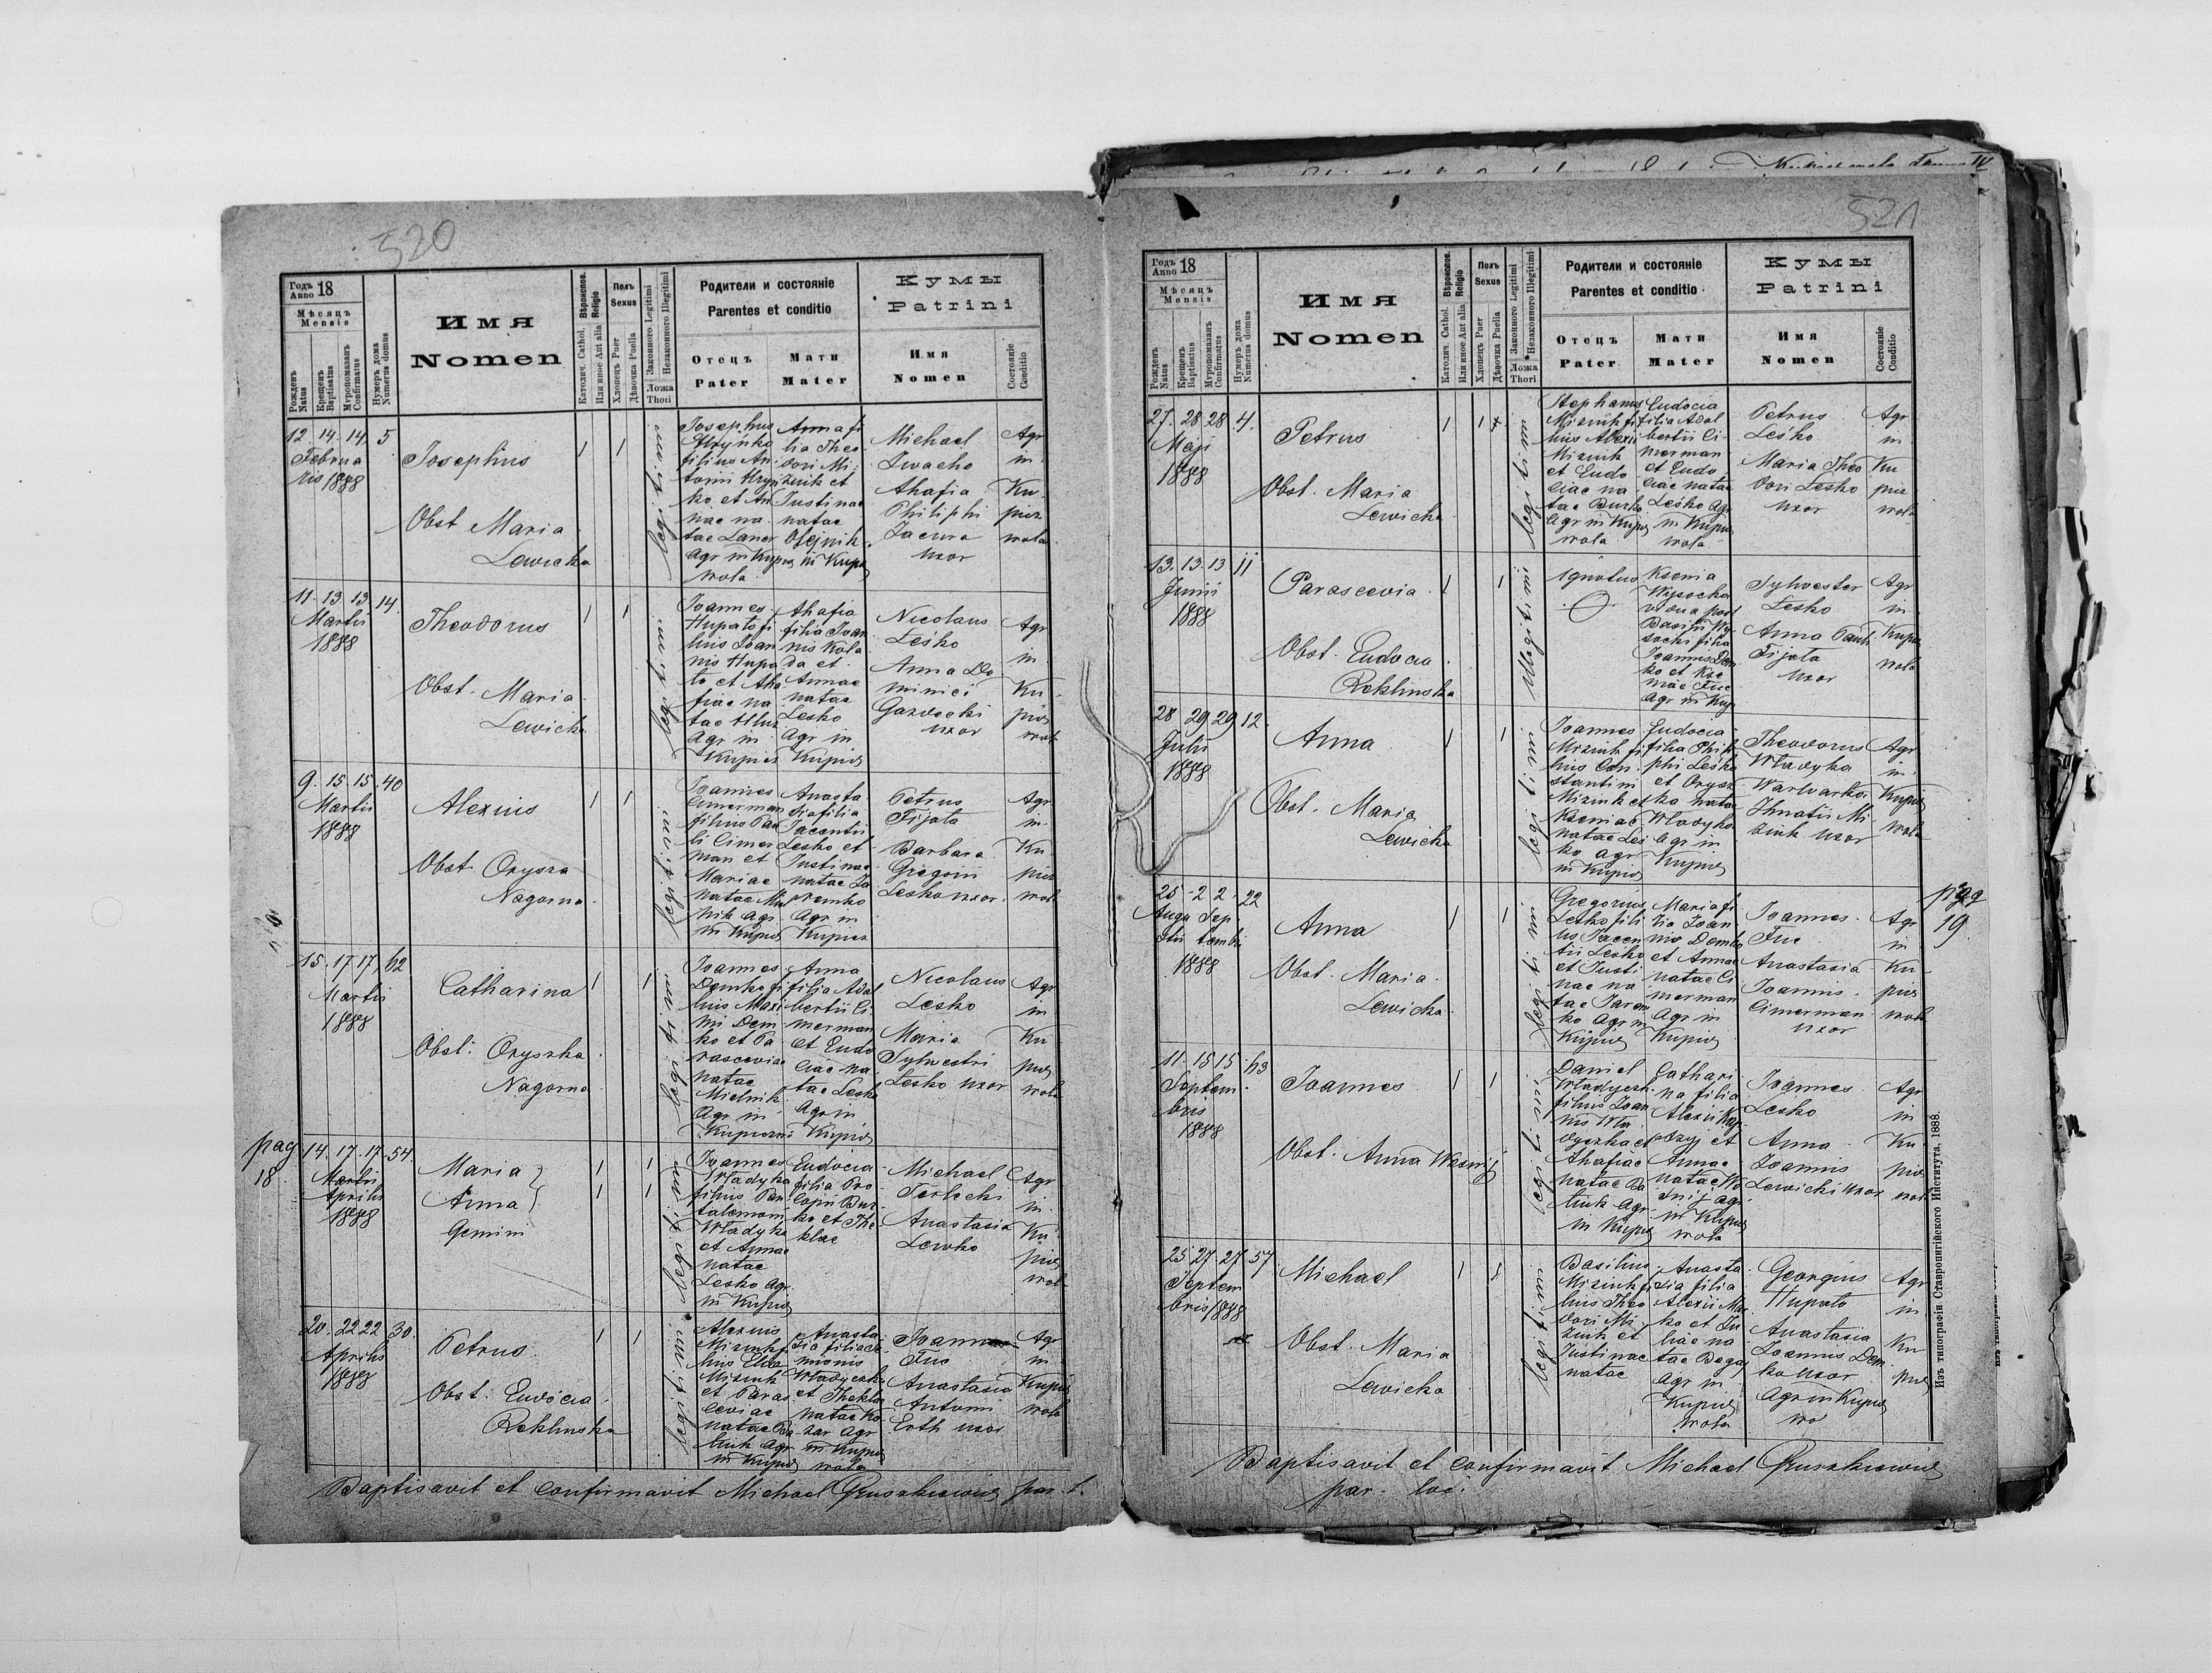 520
Годъ 18
Anno
Мѣсяцъ
Mensis
Рожденъ Natus
Крещенъ Baptisatus
Мѵропомазанъ Confirmatus
Нумеръ дома Numerus domus
Имя
Nomen
Вѣроиспов. Religio
Католич. Cathol.
Или иное Aut alia
Полъ
Sexus
Хлопецъ Puer
Дѣвочка Puella
Законного Legitimi
Незаконного Illegitimi
Ложа
Thori
Родители и состояніе
Parentes et conditio
Отецъ
Pater
Мати
Mater
Кумы
Patrini
Имя
Nomen
Состояніе
Conditio
12. 14. 14. 5
Februa
ris 1888
Josephus
Obst Maria
Lewicka
1 1
legitimi
Josephus
filius An
tonii Hryn
ko et An
nae na
tae Laner
Agr in Kupie
wola
Anna fi
lia Theo
dori Mi
zink et
Justinae
natae
Olejnik
in Kupie
Michael
Iwacho
Ahafia
Philiphi
Jacura
uxor
Agr
in
Ku
pie
wola
11. 13. 13. 14.
Martii
1888
Theodorus
Obst. Maria
Lewicka
1 1
legitimi
Joannes
Hupato fi
lius Joan
nis Hupa
to et Aha
fiae na
tae
Agr in
Kupie
Ahafia
filia Joan
nis Kola
da et
Annae
natae
Lesko
Agr in
Kupie
Nicolaus
Leśko
Anna Do
minici
Gazdecki
uxor
Agr
in
Ku
pie
wol
9. 15. 15. 40
Martii
1888
Alexius
Obst Orysza
Nagorna
1 1
legitimi
Joannes
Cimerman
filius Pau
li Cimer
man et
Mariae
natae Miel
nik Agr
in Kupie
Anasta
sia filia
Jacentii
Lesko et
Justinae
natae Ja
remko
Agr in
Kupie
Petrus
Fijata
Barbara
Gregorii
Lesko uxor
Agr
in
Ku
pie
wol
15. 17 17. 62
Martii
1888
Catharina
Obst. Oryszka
Nagorna
1 1
legitimi
Joannes
Demko fi
lius Maxi
mi Dem
ko et Pa
rasceviae
natae
Mielnik
Agr in
Anna
filia Adal
bertii Ci
merman
et Eudo
ciae na
tae Lesko
Agr in
Kupie
Nicolaus
Lesko
Maria
Sylvestri
Lesko uxor
Agr
in
Ku
pie
wola
pag
18
14. 17. 17. 54.
Martii
Aprilis
1888
Maria
Anna
Gemini
1 1
1 1
legitimi
Joannes
Wladyka
filius Pan
talemoni
Wladyka
et Annae
natae
Lesko Agr
in Kupie
Eudocia
filia Pro
copii Bur
ko et The
klae
Michael
Terlecki
Anastasia
Lewko
Agr
in
Ku
pie
wol
20. 22 22. 30.
Aprilis
1888
Petrus
Obst. Eudocia
Reklinska
1 1
legitimi
Alexius
Mizink fi
lius Elia
Mizink
et Paras
ceviae
natae Ba
tiuk Agr
in Kupie
Anasta
sia filia
Wladyczk
et Thekla
natae Ko
zar Agr
in Kupie
wola
Joannes
Fuc
Anastasia
Antonii
Eoth uxor
Agr
in
Kupie
wola
Baptisavit et confirmavit Michael Gruszkiewicz par. l.
521
Годъ 18
Anno
Мѣсяцъ
Mensis
Рожденъ Natus
Крещенъ Baptisatus
Мѵропомазанъ Confirmatus
Нумеръ дома Numerus domus
Имя
Nomen
Вѣроиспов. Religio
Католич. Cathol.
Или иное Aut alia
Полъ
Sexus
Хлопецъ Puer
Дѣвочка Puella
Законного Legitimi
Незаконного Illegitimi
Ложа
Thori
Родители и состояніе
Parentes et conditio
Отецъ
Pater
Мати
Mater
Кумы
Patrini
Имя
Nomen
Состояніе
Conditio
27. 28 28 4.
Maji
1888
Petrus
Obst. Maria
Lewicka
1 1
legitimi
Stephanus
Mizink fi
lius Alexii
Mizink
et Eudo
ciae na
tae Burko
Agr in Kupie
wola
Eudocia
filia Adal
bertii Ci
merman
et Eudo
ciae natae
Leśko Agr
in Kupie
wola
Petrus
Leśko
Maria Theo
dori Lesko
uxor
Agr
in
Ku
pie
wola
13. 13. 13 11
Junii
1888
Parascevia
Obst. Eudocia
Reklinska
1 1
Illegitimi
Ignotus
Ksenia
Wysocka
vidua post
Basilii Wy
socki filia
Joannis Dem
ko et Kse
niae Fuc
Agr in Kup
Sylvester
Lesko
Anna Pauli
Fijata
uxor
Agr
in
Kupie
wola
28 29 29 12.
Julii
1888
Anna
Obst. Maria
Lewicka
1 1
legitimi
Joannes
Mizink fi
lius Con
stantini
Mizink et
Kseniae
natae Les
ko Agr
in Kupie
Eudocia
filia Phili
phi Leśko
et Orysz
ka natae
Wladyka
Agr in
Kupie
Theodorus
Wladyka
Warwarka
Ihnatii Mi
zink uxor
Agr
in
Kupie
wola
25 2 2. 22
Augu Sep
stii tembr
1888
Anna
Obst. Maria
Lewicka
1 1
legitimi
Gregorius
Lesko fili
us Jacen
tii Lesko
et Justi
nae na
tae Jarem
ko Agr in
Kupie
Maria fi
lia Joan
nis Demko
et Annae
natae Ci
merman
Agr in
Kupie
Joannes
Fuc
Anastasia
Joannis
Cimerman
uxor
Agr
in
Ku
pie
wola
pag
19.
11. 15 15. 63
Septem
bris
1888
Joannes
Obst. Anna
1 1
legitimi
Daniel
Wladyczk
filius Joan
nis Wla
dyczka et
Ahafiae
natae Ba
tiuk Agr
in Kupie
Cathari
na filia
Alexii
et
Annae
natae
Agr
in Kupie
wola
Joannes
Lesko
Anna
Joannis
Lewicki uxor
Agr
in
Ku
pie
wol
25 27 27 57
Septem
bris 1888
Michael
Obst. Maria
Lewicka
1 1
legitimi
Basilius
Mizink fi
lius Theo
dori Mi
zink et
Justinae
natae
Anasta
sia filia
Alexii
ko et Ju
liae na
tae
Agr in
Kupie
wola
Georgius
Hupato
Anastasia
Joannis Dem
ko uxor
Agr in Kupie
wo
Agr
in
Ku
pie
Baptisavit et confirmavit Michael Gruszkiewicz
par. loc.
Изъ типографіи Ставропигійского Института. 1888.